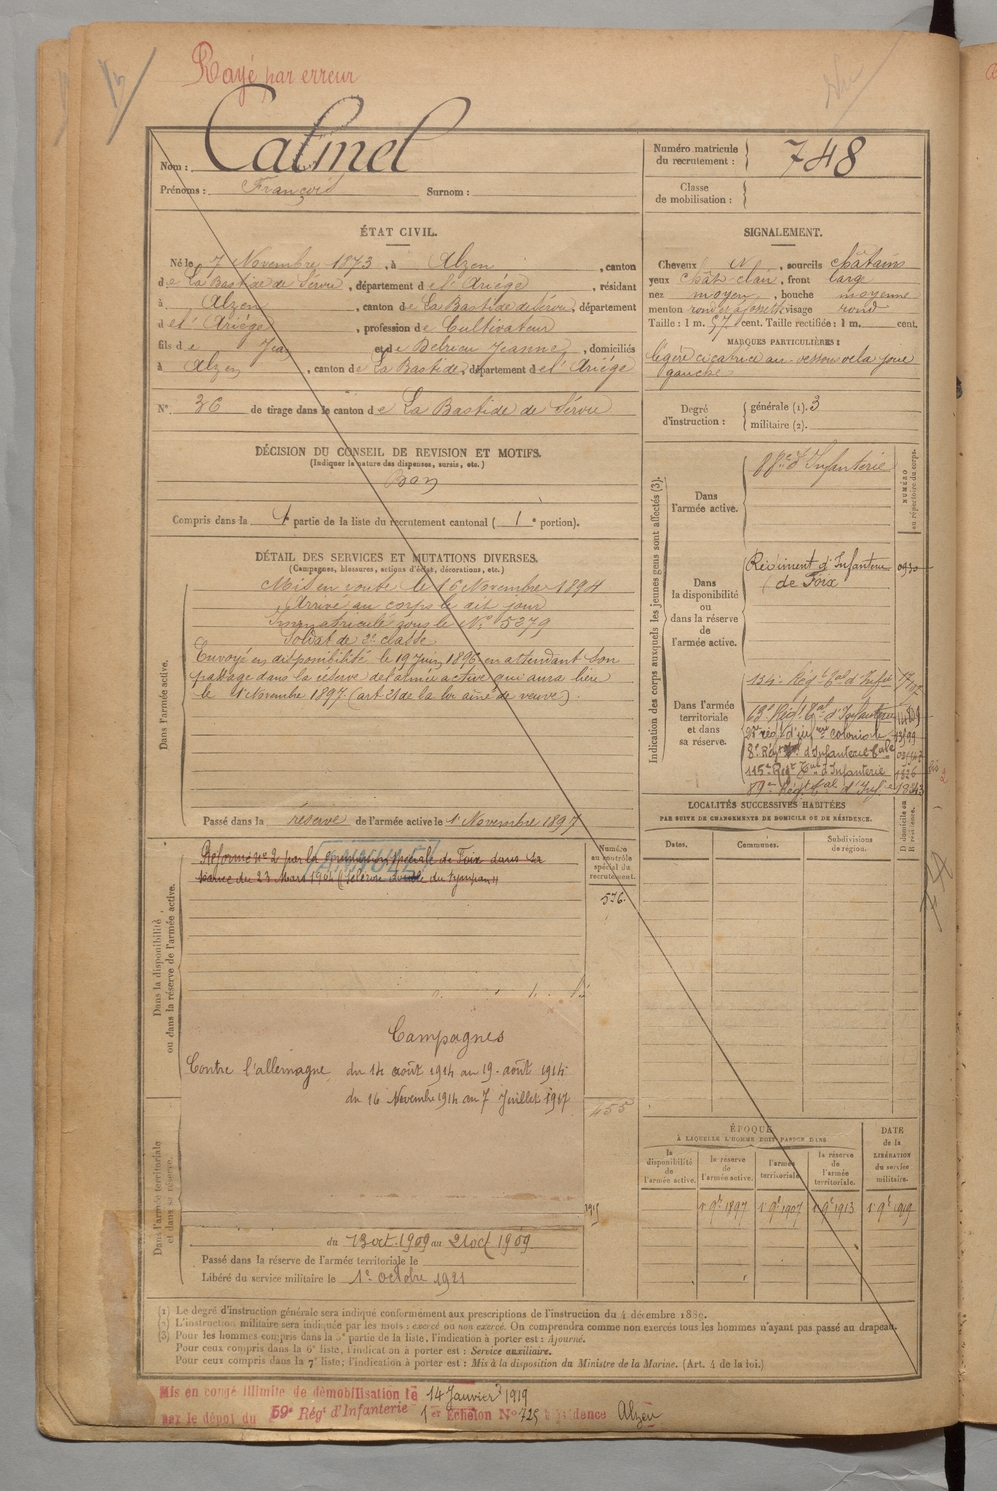 Rayé par erreur
Nom : Calmel
Prénoms : François Surnom :
Numéro matricule du recrutement : 748
Classe de mobilisation :
ÉTAT CIVIL.
Né le 7 Novembre 1873, à Alzen, canton
de La Bastide de Sérou, département de l'Ariège, résidant
à Alzen, canton de La Bastide de Sérou, département
de l'Ariège, profession de Cultivateur
fils de Jean et de Jeanne, domiciliés
à Alzen, canton de La Bastide, département de l'Ariège
N° 36 de tirage dans le canton de La Bastide de Sérou
SIGNALEMENT.
Cheveux , sourcils châtains
yeux chât clair, front large
nez moyen, bouche moyenne
menton rond à fossette visage rond
Taille : 1 m. 57 cent. Taille rectifiée : 1 m. cent.
MARQUES PARTICULIÈRES :
légère cicatrice au-dessous de la joue
gauche
Degré d'instruction : générale (1). 3
militaire (2).
DÉCISION DU CONSEIL DE REVISION ET MOTIFS.
(Indiquer la nature des dispenses, sursis, etc.)
Bon
Compris dans la 1e partie de la liste du recrutement cantonal ( 1e portion).
DÉTAIL DES SERVICES ET MUTATIONS DIVERSES.
(Campagnes, blessures, actions d'éclat, décorations, etc.)
Dans l'armée active.
Mis en route le 16 Novembre 1894
Arrivé au corps le dit jour
Immatriculé sous le N° 5279
Soldat de 2e classe
Envoyé en disponibilité le 19 Juin 1896 en attendant son
passage dans la réserve de l'armée active qui aura lieu
le 1er Novembre 1897 (art. 21 de la loi aîné de veuve)
Passé dans la réserve de l'armée active le 1er Novembre 1897
Indication des corps auxquels les jeunes gens sont affectés (3).
NUMÉRO au répertoire du corps.
Dans l'armée active.
88e d'Infanterie
Dans la disponibilité ou dans la réserve de l'armée active.
Régiment d'Infanterie
de Foix
Dans l'armée territoriale et dans sa réserve.
134e Rég. t.al d'Inf.ie
63e Rég.t t.al d'Infanterie
23e rég. d'inf.rie coloniale
8e Rég. d'Infanterie t.ale
115e Rég.t T.al d'Infanterie
89e Rég.t t.al d'Inf.ie
LOCALITÉS SUCCESSIVES HABITÉES
PAR SUITE DE CHANGEMENTS DE DOMICILE OU DE RÉSIDENCE.
Dates. Communes. Subdivisions de région. D. domicile ou R. résidence.
Dans la disponibilité ou dans la réserve de l'armée active.
Réformé n° 2 par la commission spéciale de Foix dans sa
séance du 23 Mars 1904 du tympan
ANNULÉ
Numéro au contrôle spécial du recrutement.
576.
Campagnes
Contre l'allemagne du 14 août 1914 au 19 août 1914
du 16 Novembre 1914 au 7 Juillet 1917
455
Dans l'armée territoriale et dans sa réserve.
du 13 oct. 1909 au 21 oct 1909
Passé dans la réserve de l'armée territoriale le
Libéré du service militaire le 1er octobre 1921
ÉPOQUE
À LAQUELLE L'HOMME DOIT PASSER DANS
la disponibilité de l'armée active. la réserve de l'armée active. l'armée territoriale. la réserve de l'armée territoriale.
DATE de la LIBÉRATION du service militaire.
1er 9bre 1897 1er 9bre 1907 1er 9bre 1913 1er 9bre 1919
(1) Le degré d'instruction générale sera indiqué conformément aux prescriptions de l'instruction du 4 décembre 1889.
(2) L'instruction militaire sera indiquée par les mots : exercé ou non exercé. On comprendra comme non exercés tous les hommes n'ayant pas passé au drapeau.
(3) Pour les hommes compris dans la 5e partie de la liste, l'indication à porter est : Ajourné.
Pour ceux compris dans la 6e liste, l'indication à porter est : Service auxiliaire.
Pour ceux compris dans la 7e liste, l'indication à porter est : Mis à la disposition du Ministre de la Marine. (Art. 4 de la loi.)
Mis en congé illimité de démobilisation le 14 Janvier 1919
par le dépôt du 59e Régt d'Infanterie 1er Echelon N° 725 résidence Alzen